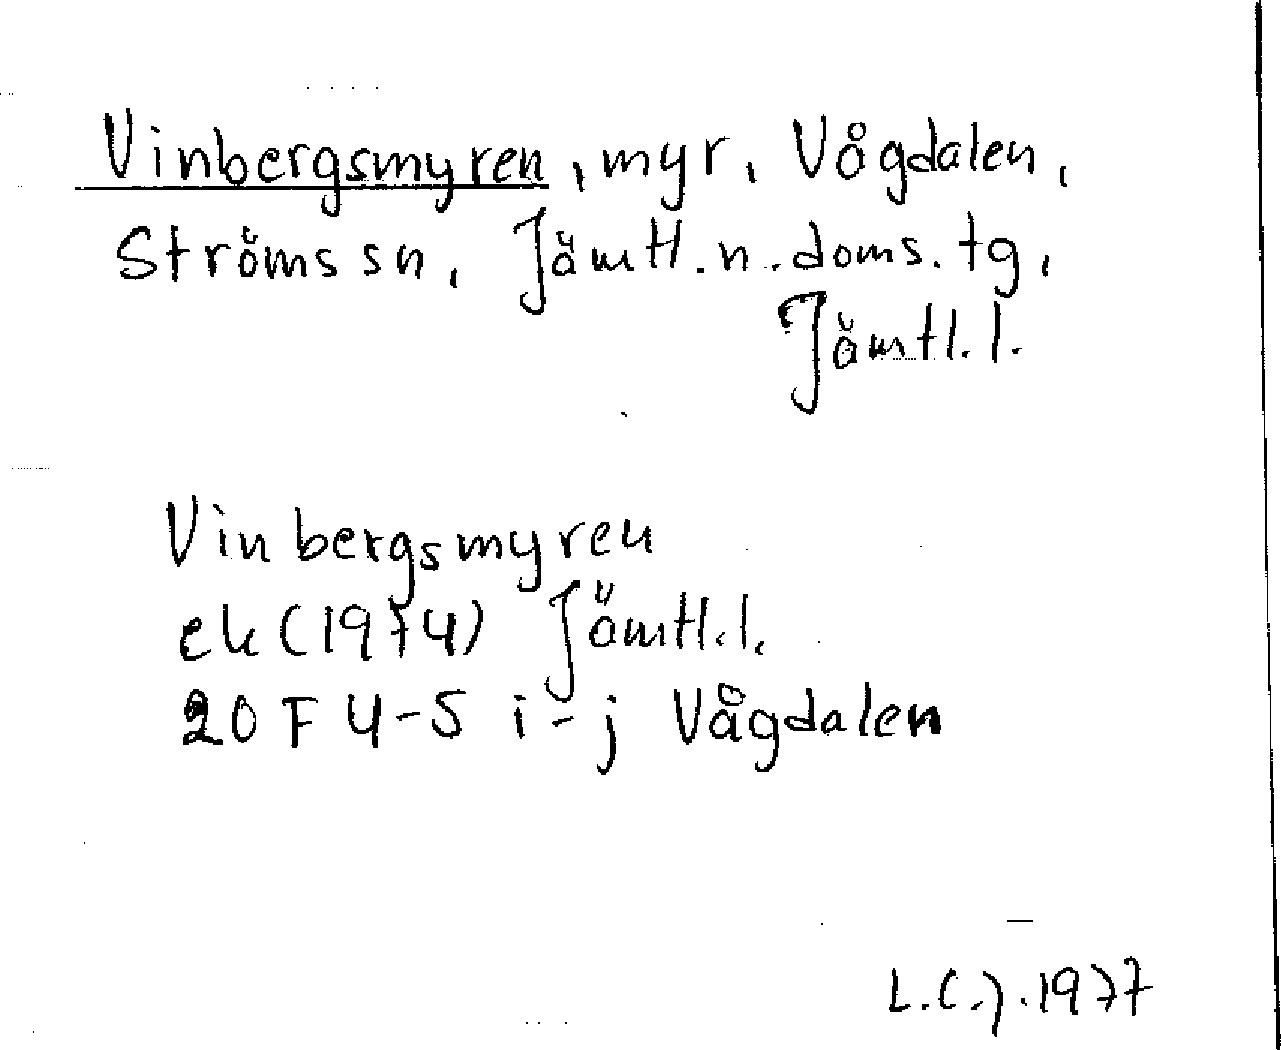 Vinbergsmyren, myr, Vågdalen,
Ströms sn, Jämtl. n. doms. tg,
Jämtl. l.
Vinbergsmyren
ek (1974) Jämtl. l.
20 F 4-5 i-j Vågdalen
L.C.J. 1977